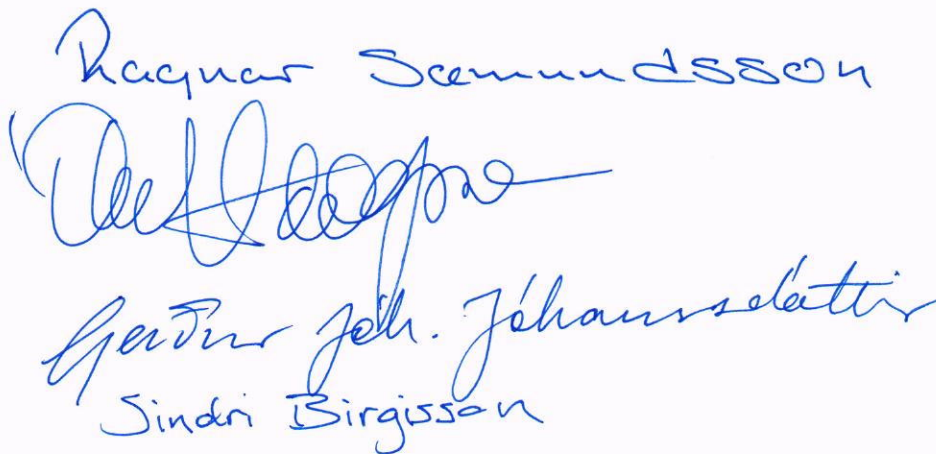 Ragnar Sæmundsson
Gerður Jóh. Jóhannsdóttir
Sindri Birgisson